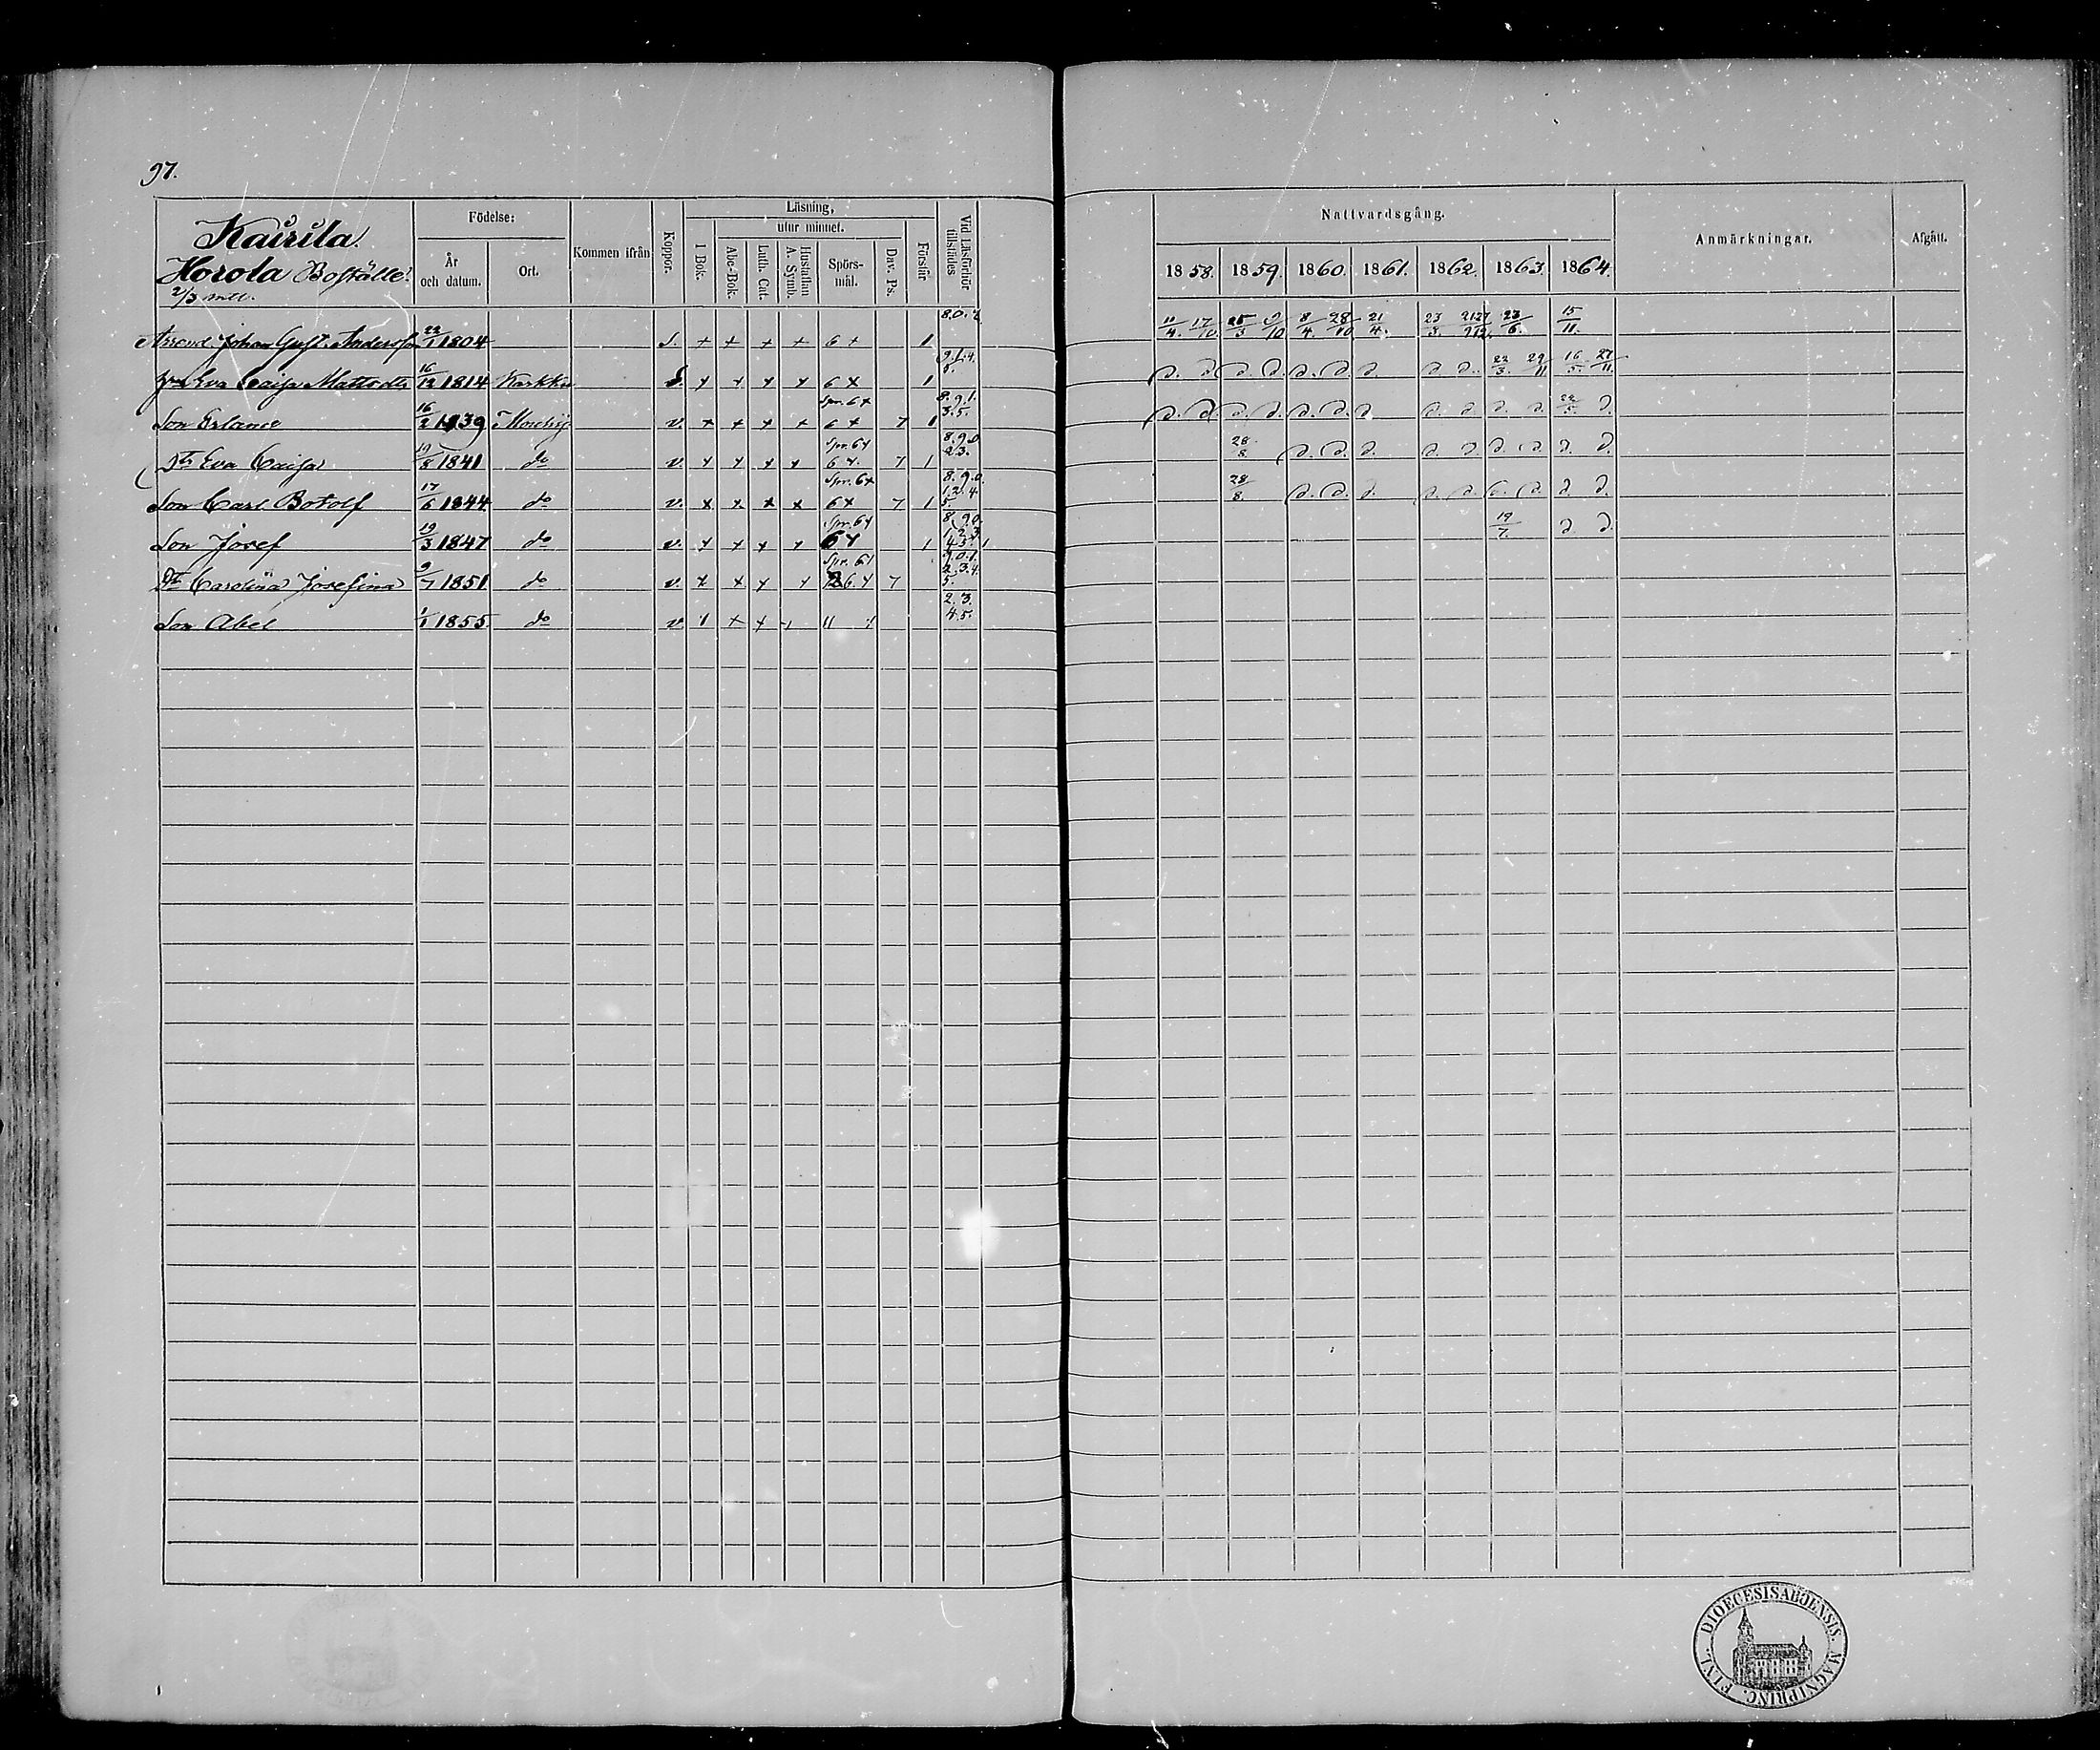 97.
Kairila.
Horola Boställe.
2/3 mtl.
Födelse:
År och datum.
Ort.
Kommen ifrån
Koppor.
Läsning,
I Bok.
utur minnet.
Abc-Bok.
Luth. Cat.
Hustaflan A. Symb.
Spörs-mål.
Dav. Ps.
Förstår
Vid Läsförhör tillstädes
Nattvardsgång.
1858. 1859. 1860. 1861. 1862. 1863. 1864.
Anmärkningar.
Afgått.
Arrend. Johan Gust. Andersson 22/1 1804 s. + + + + 6 + 1 10/4. 17/10 25/3 9/10 8/4. 28/10 21/4. 23/3. 23/6. 15/11.
Eva Caisa Mattsdtr 16/12 1814 Karkku + + + + 6 + 1 d. d d. d. d. d. d. d d. 22/3. 29/11 16/5. 27/11.
Son Erland 16/2 1839 v. + + + + Spr. 6 + 6 + 7 1 8.9.1. 3.5. d. d d. d. d. d. d d. d. d. d 22/5. d.
Dtr Eva Caisa 19/8 1841 do v. + + + + Spr. 6 + 6 +. 7 1 8.9.0 2.3. 28/8. d. d. d. d d d. d d. d
Son Carl Botolf 17/6 1844 do v. + + + + Spr. 6 + 6 + 7 1 8.9.0. 1.2.4. 5. 28/8. d. d. d. d. d. d. d. d. d.
Son Josef 19/3 1847 do v. + + + + Spr. 6 + 6 + 1 8.9.0. 1.2.3. 4.5. 1 19/7. d d.
Dtr Carolina Josefina 9/7 1851 do v. + + + + Spr. 6 + 6 + 7 9.0.1. 2.3.4. 5.
Son Abel 1/1 1855 do v. 1 + + + 11 + 2.3. 4.5.
DIOECESIS ABOENSIS. MAGNI PRINC. FINL.